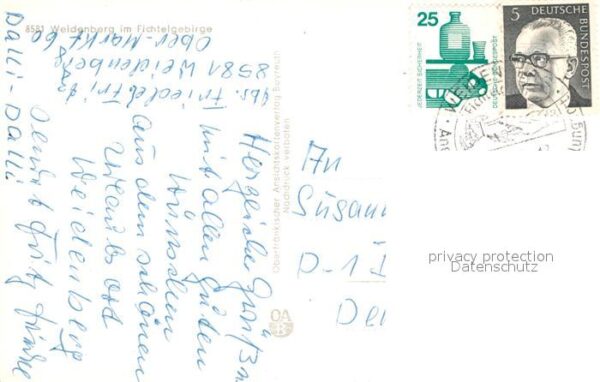 8581 Weidenberg im Fichtelgebirge
Abs. Friedel Fritz
8581 Weidenberg
Ober-Markt 60
Herzliche Grüße
mit allen guten
Wünschen
aus dem schönen
Urlaubsort
Weidenberg
Fritz
Dalli-Dalli
Oberfränkischer Ansichtskartenverlag Bayreuth
Nachdruck verboten
OA
B
25
JEDERZEIT SICHERHEIT
DEUTSCHE BUNDESPOST
5
DEUTSCHE BUNDESPOST
An
Susann
D-1
privacy protection
Datenschutz